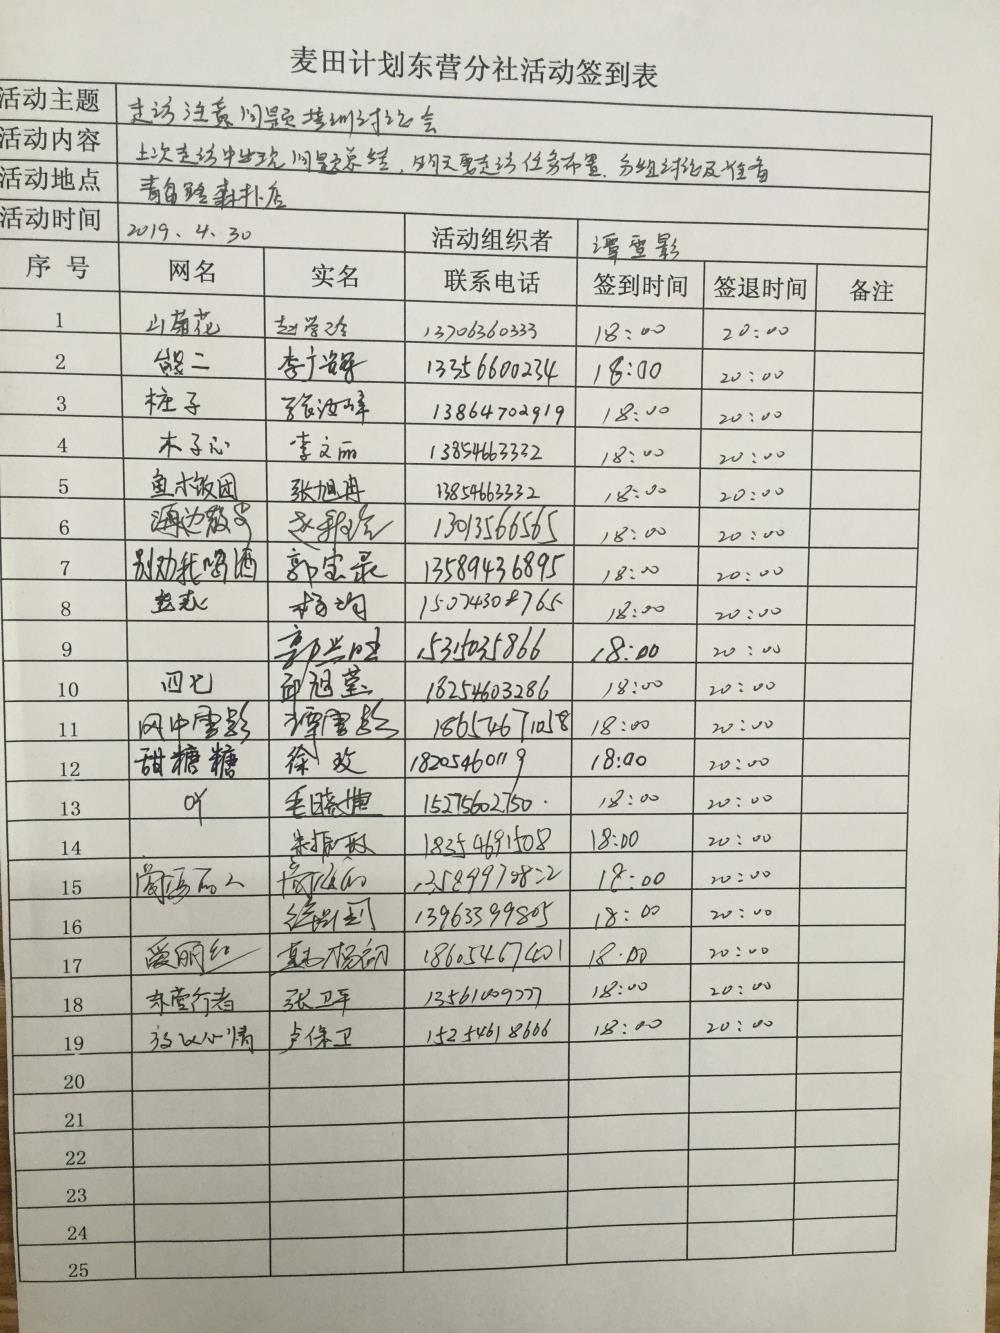 麦田计划东营分社活动签到表
活动主题 走访注意问题培训讨论会
活动内容 上次走访中出现问题总结,明天要走访任务布置,分组讨论及准备
活动地点 青岛路森林店
活动时间 2019、4、30 活动组织者 谭雪影
序号 网名 实名 联系电话 签到时间 签退时间 备注
1 山菊花 赵学玲 13706360333 18:00 20:00
2 熊二 13356600234 18:00 20:00
3 柱子 张汝峰 13864702919 18:00 20:00
4 木子心 李文丽 13854663332 18:00 20:00
5 鱼木饭团 张旭冉 13854663332 18:00 20:00
6 13013566565 18:00 20:00
7 别劝我喝酒 郭宝录 13589436895 18:00 20:00
8 18:00 20:00
9 郭兰旺 15315035866 18:00 20:00
10 四七 邱冠莹 18254603286 18:00 20:00
11 风中雪影 谭雪影 18654671058 18:00 20:00
12 甜糖糖 徐玫 18205460119 18:00 20:00
13 吖 毛晓娟 15275602750 18:00 20:00
14 朱振敏 18354691508 18:00 20:00
15 18:00 20:00
16 13963399805 18:00 20:00
17 爱丽红 18605467401 18:00 20:00
18 东营行者 张卫平 13561009777 18:00 20:00
19 卢保卫 15254618606 18:00 20:00
20
21
22
23
24
25